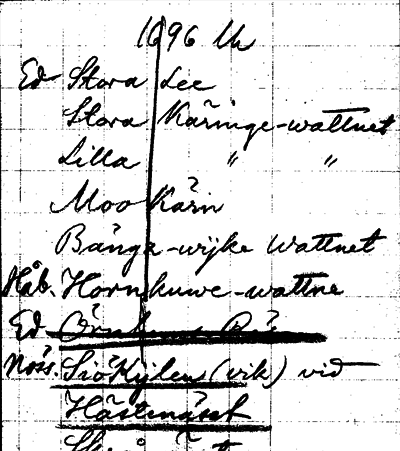 1696 
Ed Stora Lee
Stora Käringe-wattnet
Lilla " "
Moo Kärn
Bånga-wijke wattnet
Håb. Hornkuwe-wattne
Ed
Nöss. Siökylen (vik) vid
Hästenäset